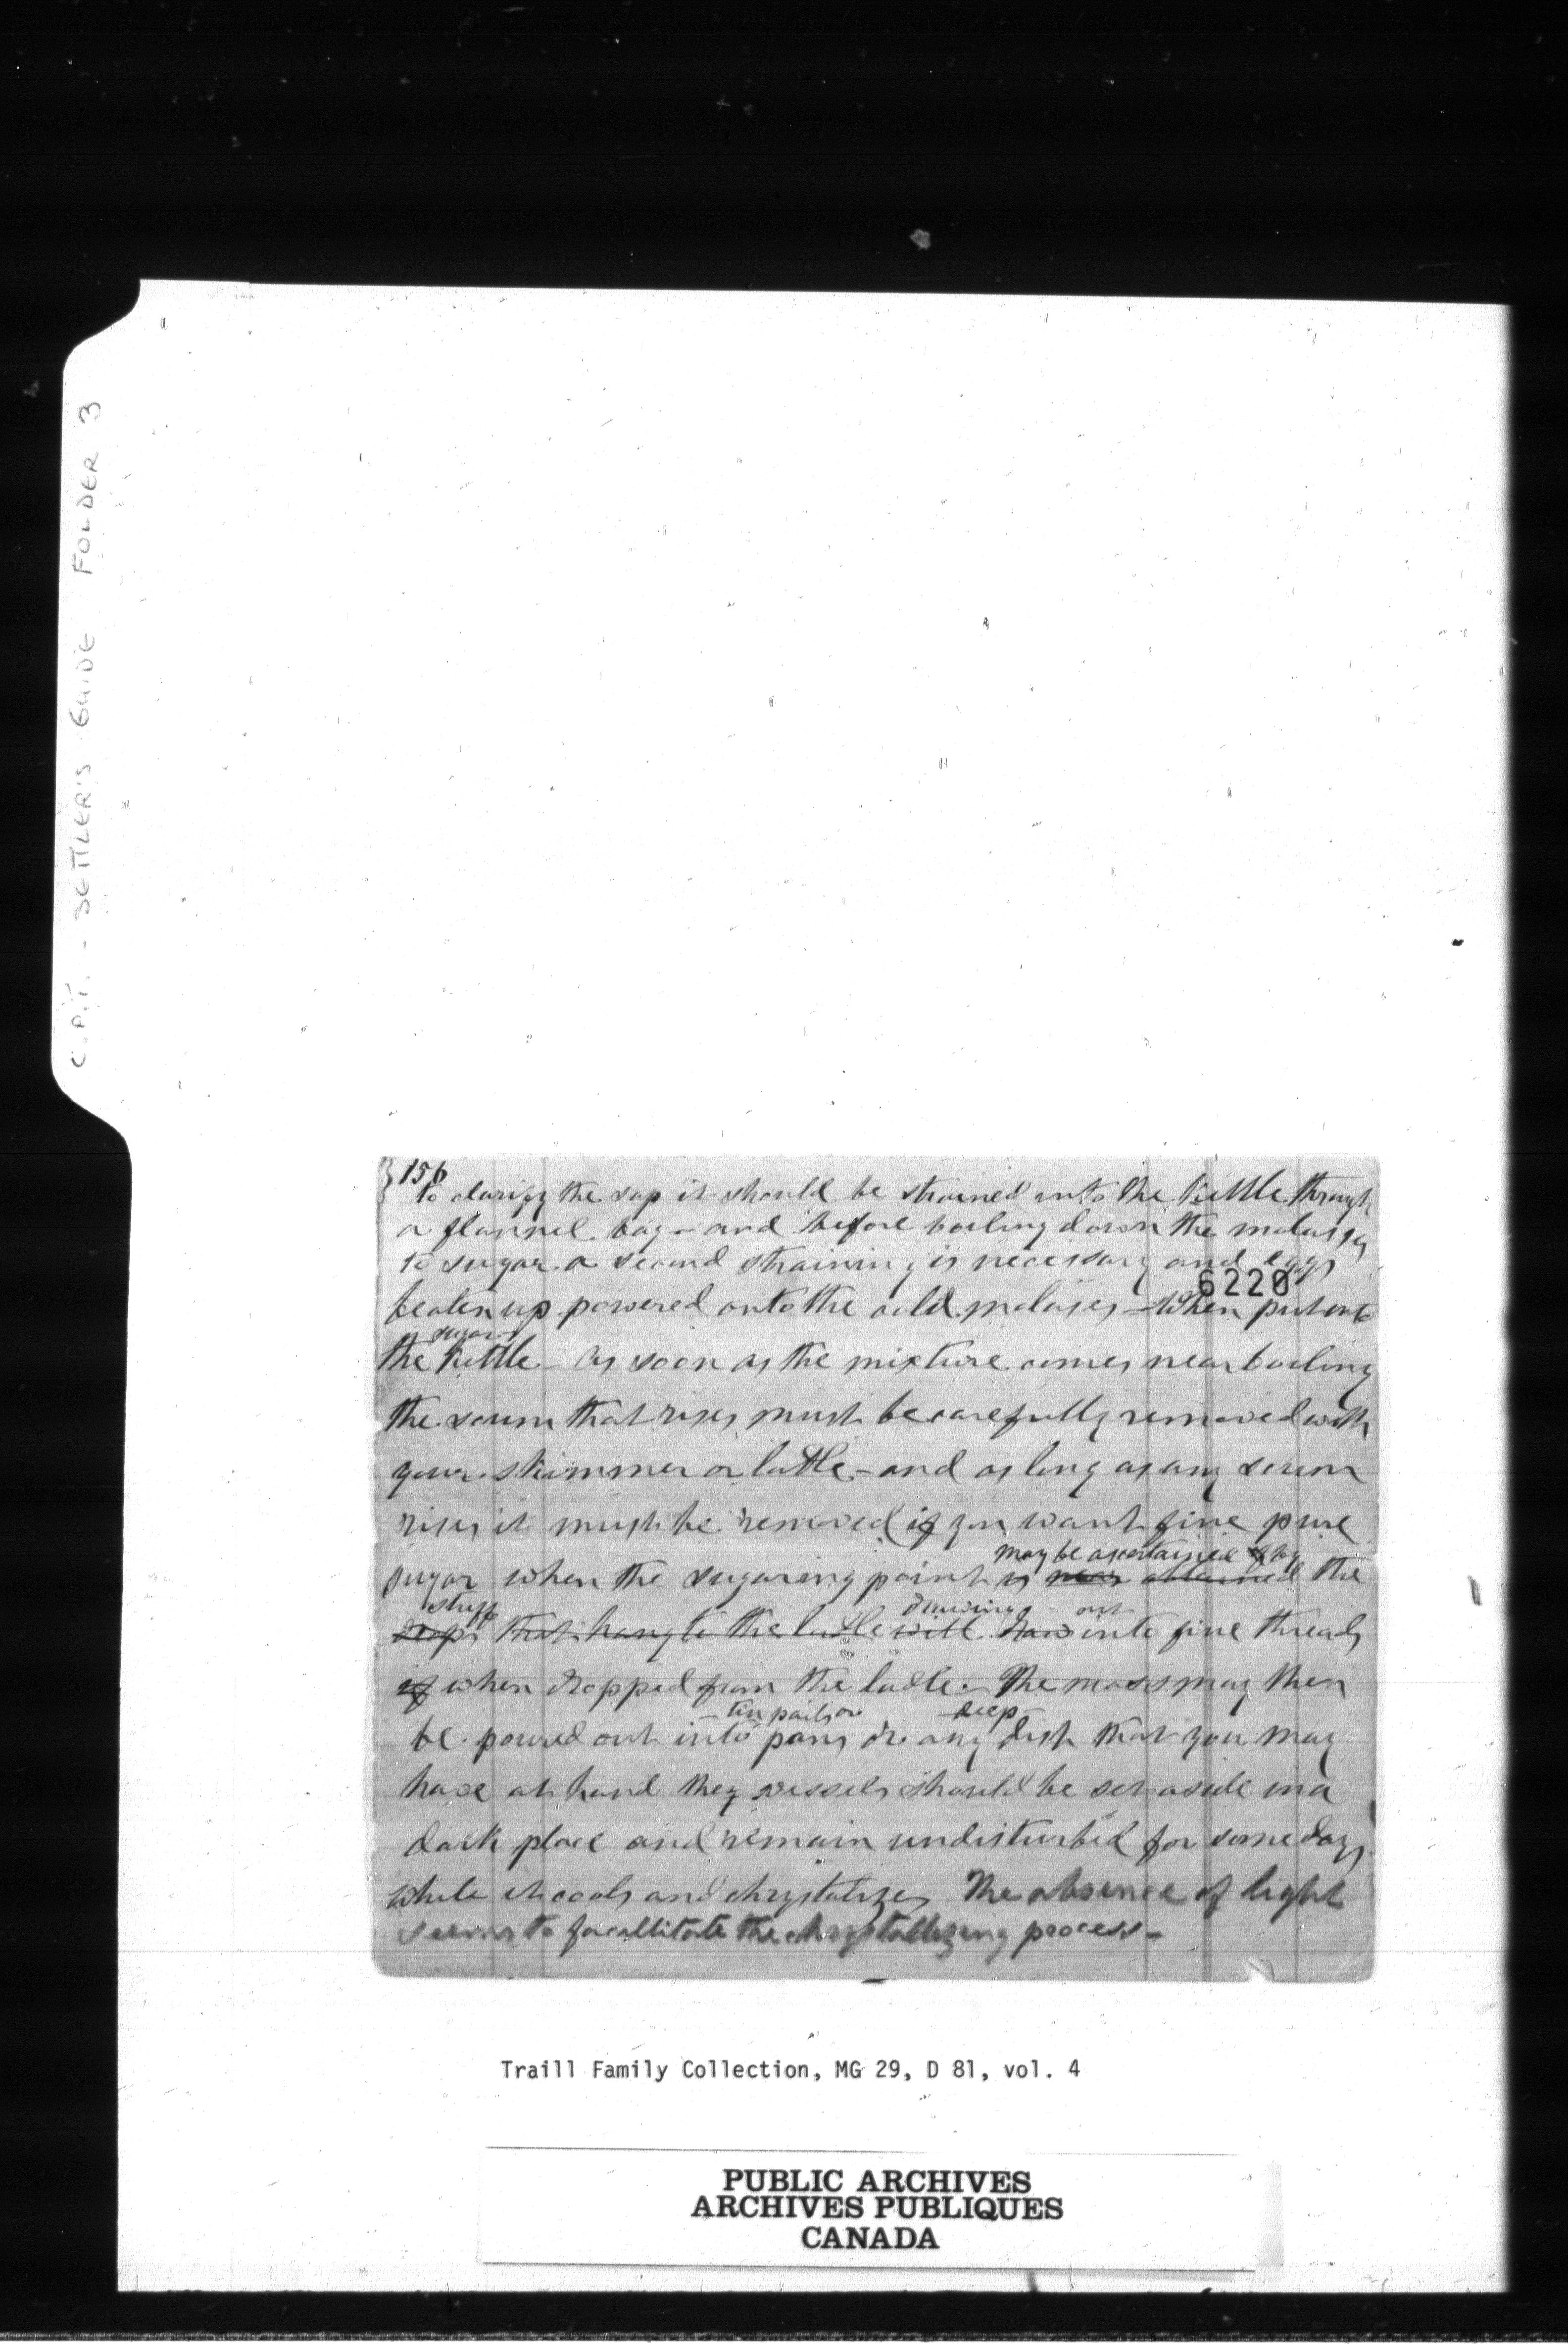 C.P.T. - SETTLER'S GUIDE FOLDER 3
156
To clarify the sap it should be strained into the kettle through
a flannel bag - and before boiling down the molasses
to sugar a second straining is necessary and eggs
6220
beaten up powered onto the cold molasses - When put into
sugar
the kettle - As soon as the mixture comes near boiling
the scum that rises must be carefully removed with
your skimmer or ladle - and as long as any scum
rises it must be removed if you want fine pure
may be ascertained by
sugar when the sugaring point is near attained the
stuff drawing out
drops that hang to the ladle will draw into fine threads
if when dropped from the ladle - The mass may then
tin pails or deep
be poured out into pans or any dish that you may
have at hand they vessels should be set aside in a
dark place and remain undisturbed for some days
while it cools and chrystalizes The absence of light
seems to facillitate the chrystallizing process -
Traill Family Collection, MG 29, D 81, vol. 4
PUBLIC ARCHIVES
ARCHIVES PUBLIQUES
CANADA